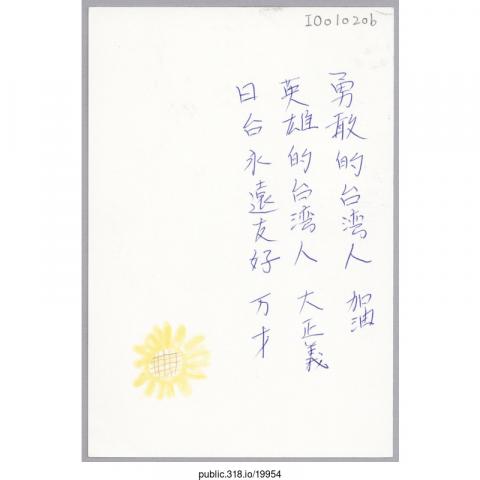 I0010206
勇敢的台湾人 加油
英雄的台湾人 大正義
日台永遠友好 万才
public.318.io/19954